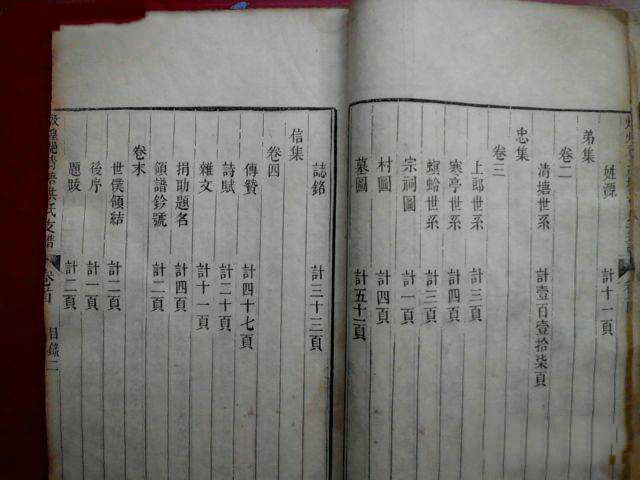 姓源 計十一頁
弟集
卷二
清塘世系 計壹百壹拾柒頁
忠集
卷三
上郎世系 計三頁
寒亭世系 計四頁
螟蛉世系 計三頁
宗祠圖 計一頁
村圖 計四頁
墓圖 計五十一頁
誌銘 計三十三頁
信集
卷四
傳贊 計四十七頁
詩賦 計二十頁
雜文 計十一頁
捐助題名 計四頁
領譜鈐號 計二頁
卷末
世僕領結 計二頁
後序 計一頁
題跋 計二頁
敦煌 洪氏支譜 目錄二